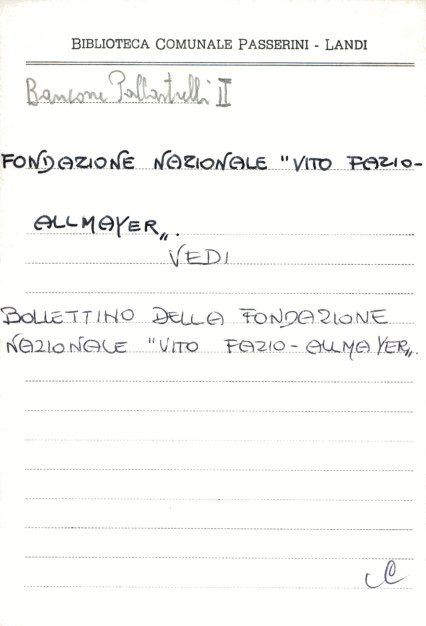 BIBLIOTECA COMUNALE PASSERINI - LANDI
Bancone Pallastrelli II
FONDAZIONE NAZIONALE "VITO FAZIO-
ALLMAYER".
VEDI
BOLLETTINO DELLA FONDAZIONE
NAZIONALE "VITO FAZIO-ALLMAYER".